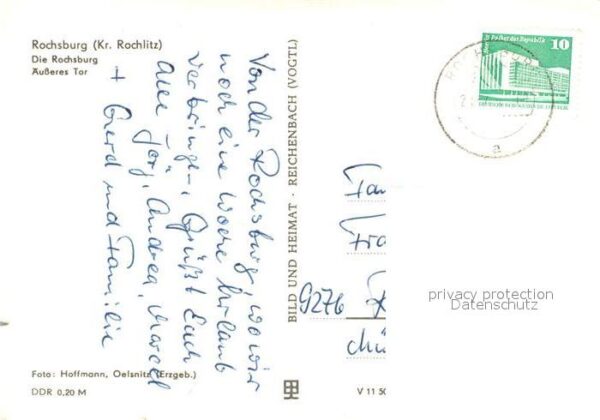 Rochsburg (Kr. Rochlitz)
Die Rochsburg
Äußeres Tor
Von der Rochsburg, wo wir
noch eine Woche Urlaub
verbringen, Grüßt Euch
Jörg, Andrea, Marcel
+ Gerd und Familie
BILD UND HEIMAT · REICHENBACH (VOGTL)
10
Palast der Republik
9276
privacy protection
Datenschutz
Foto: Hoffmann, Oelsnitz (Erzgeb.)
DDR 0,20 M
V 11 50